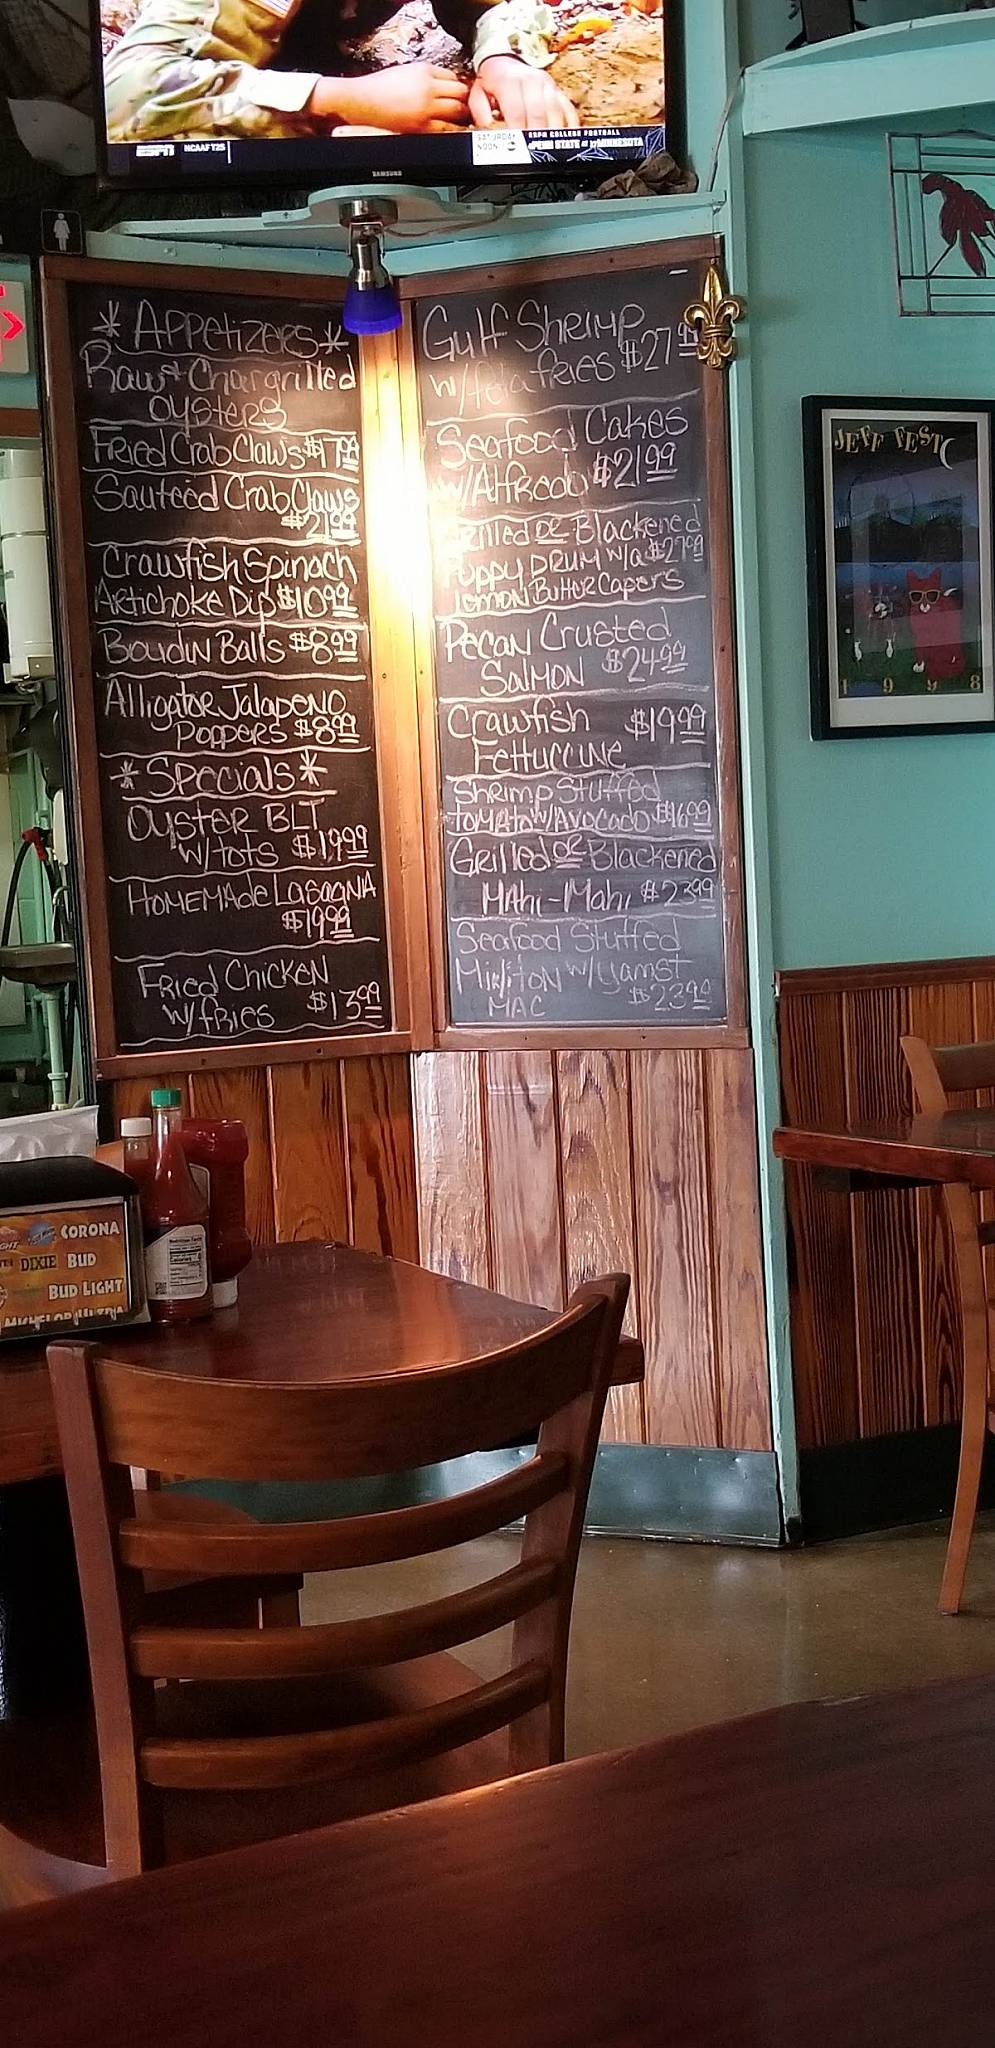 ESPN NCAAF T25
SATURDAY
NOON abc
ESPN COLLEGE FOOTBALL
PENN STATE AT 17 MINNESOTA
SAMSUNG
* Appetizers *
Raw & Chargrilled
Oysters
Fried Crab Claws $17.99
Sauteed Crab Claws
$21.99
Crawfish Spinach
Artichoke Dip $10.99
Boudin Balls $8.99
Alligator Jalapeno
Poppers $8.99
* Specials *
Oyster BLT
w/tots $19.99
Homemade Lasagna
$19.99
Fried Chicken
w/fries $13.99
Gulf Shrimp
w/feta fries $27.99
Seafood Cakes
w/Alfredo $21.99
Grilled or Blackened
Puppy Drum w/a $27.99
Lemon Butter Capers
Pecan Crusted
Salmon $24.99
Crawfish $19.99
Fettuccine
Shrimp Stuffed
tomato w/Avocado $16.99
Grilled or Blackened
Mahi-Mahi $23.99
Seafood Stuffed
Mirliton w/yams +
MAC $23.99
JEFF FEST
1998
CORONA
DIXIE BUD
BUD LIGHT
MICHELOB ULTRA
Nutrition Facts
Calories